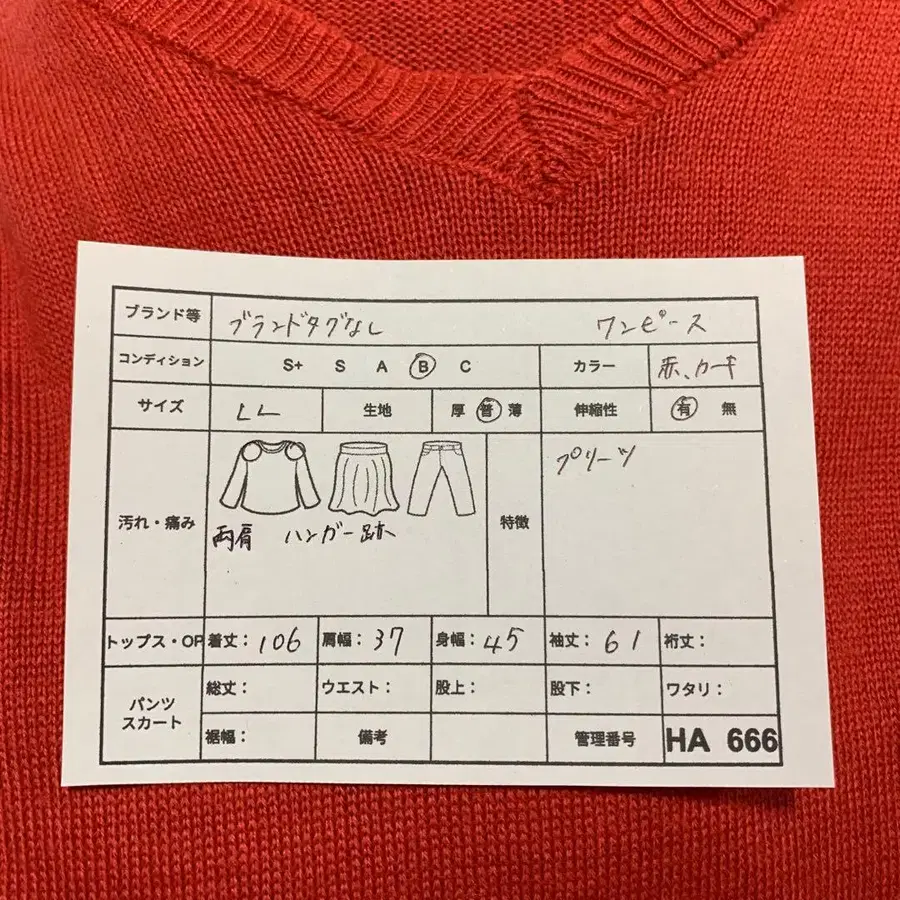 ブランド等 ブランドタグなし ワンピース
コンディション S+ S A B C カラー 赤、カーキ
サイズ LL 生地 厚 普 薄 伸縮性 有 無
汚れ・痛み 両肩 ハンガー跡 特徴 プリーツ
トップス・OP 着丈：106 肩幅：37 身幅：45 袖丈：61 裄丈：
パンツ スカート 総丈： ウエスト： 股上： 股下： ワタリ：
裾幅： 備考 管理番号 HA 666